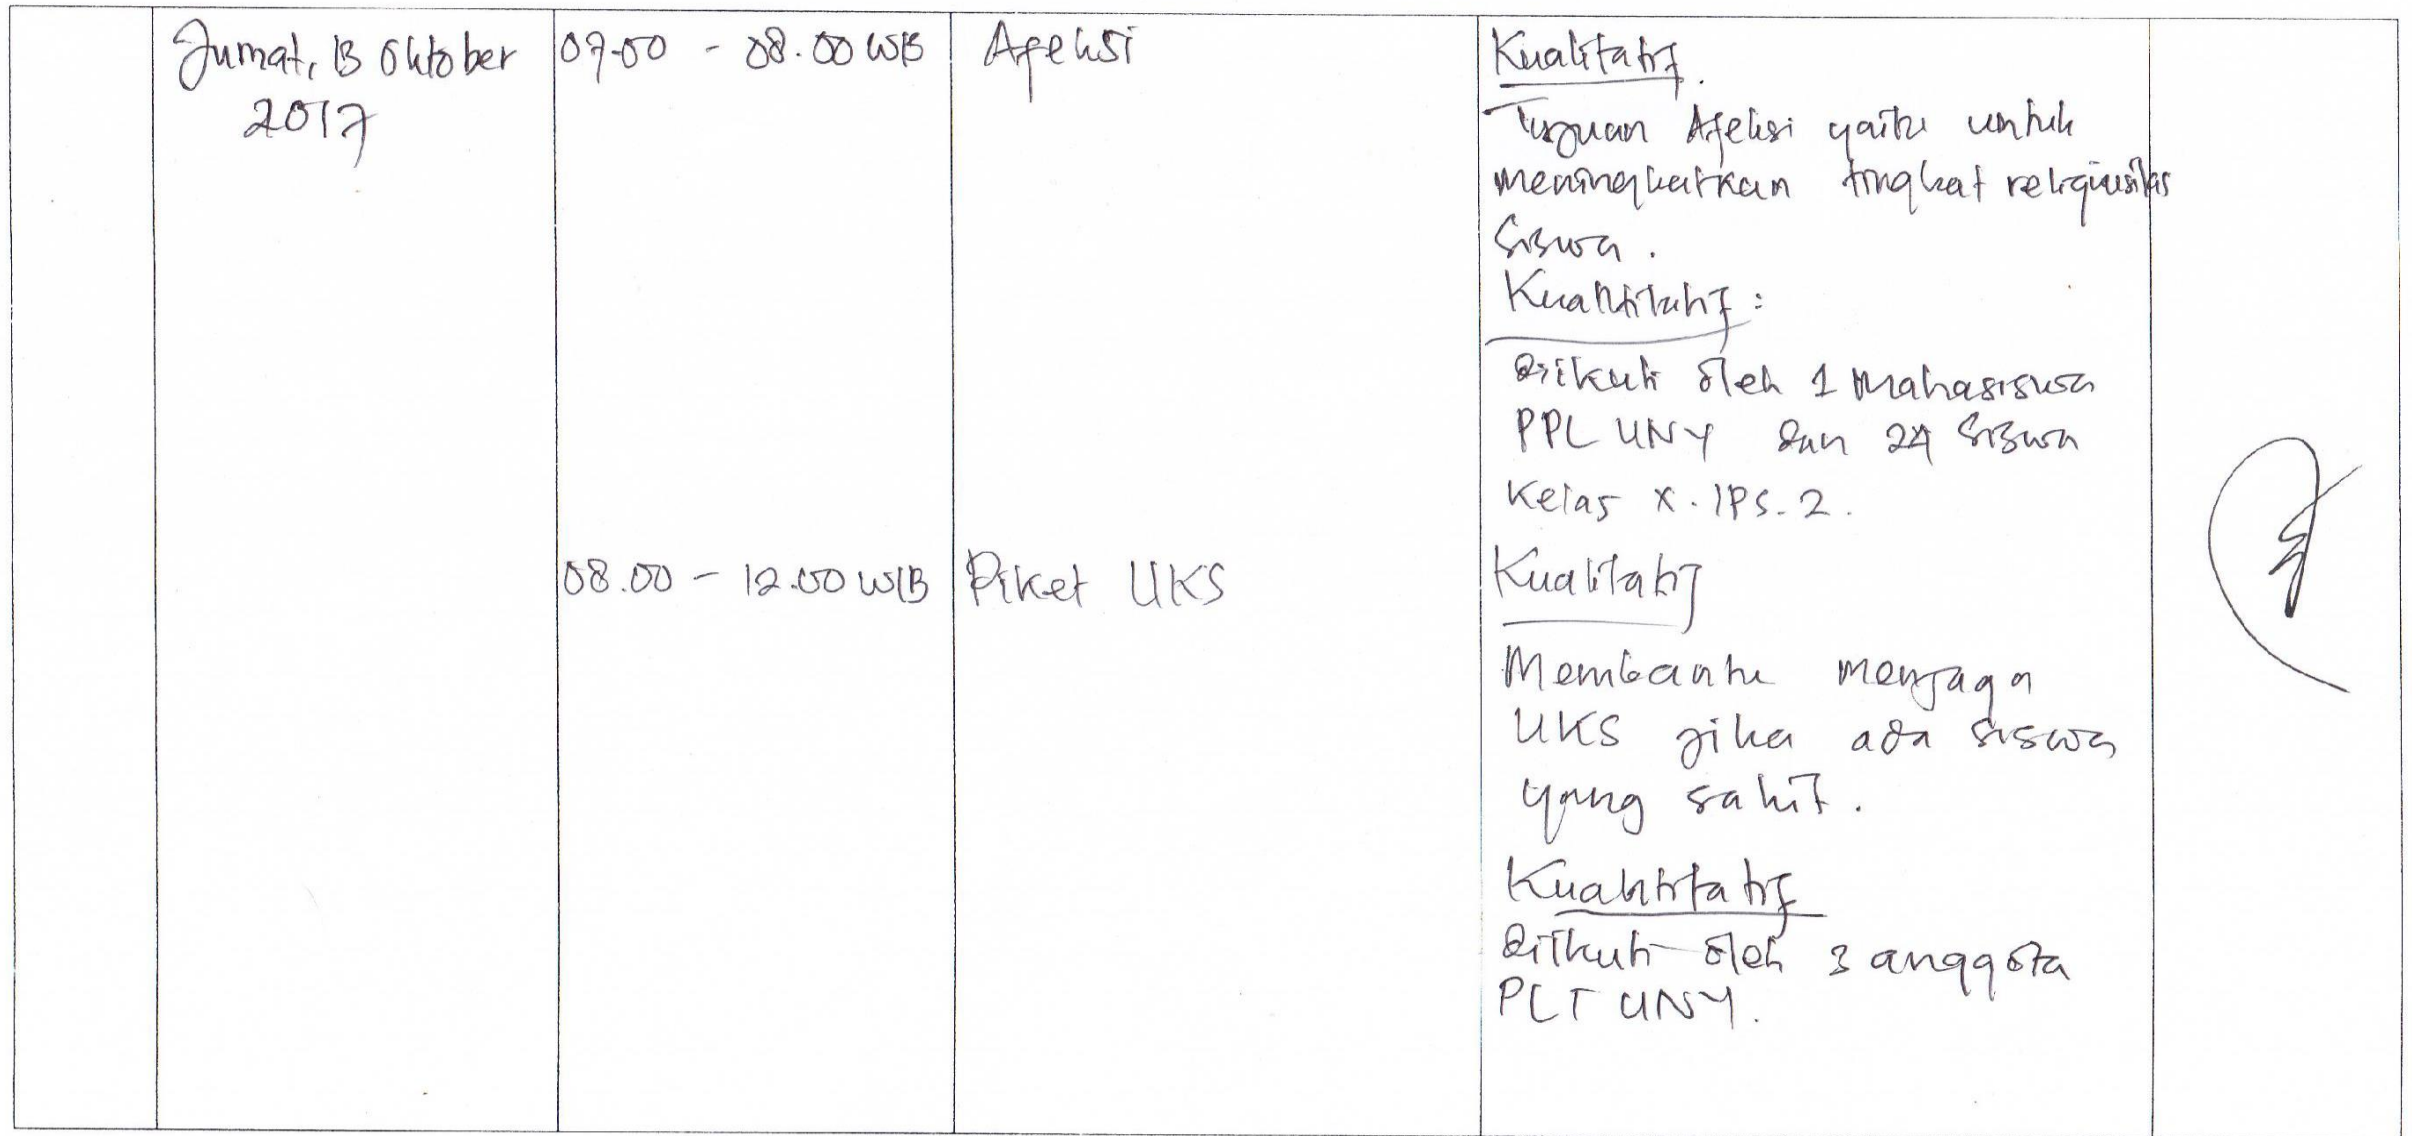 Jumat, 13 Oktober
2017
07.00 - 08.00 WIB
Afeksi
Kualitatif.
Tujuan Afeksi yaitu untuk
meningkatkan tingkat religiusitas
siswa.
Kuantitatif :
Diikuti oleh 1 mahasiswa
PPL UNY dan 24 siswa
Kelas X. IPS. 2.
08.00 - 12.00 WIB
Piket UKS
Kualitatif
Membantu menjaga
UKS jika ada siswa
yang sakit.
Kuantitatif
Diikuti oleh 3 anggota
PLT UNY.